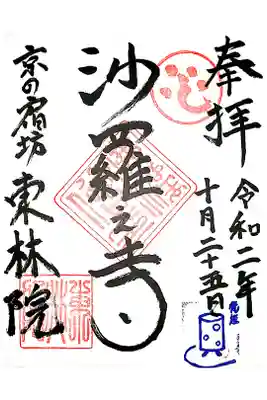 奉拝
令和二年
十月二十五日
沙羅之寺
京の宿坊
東林院